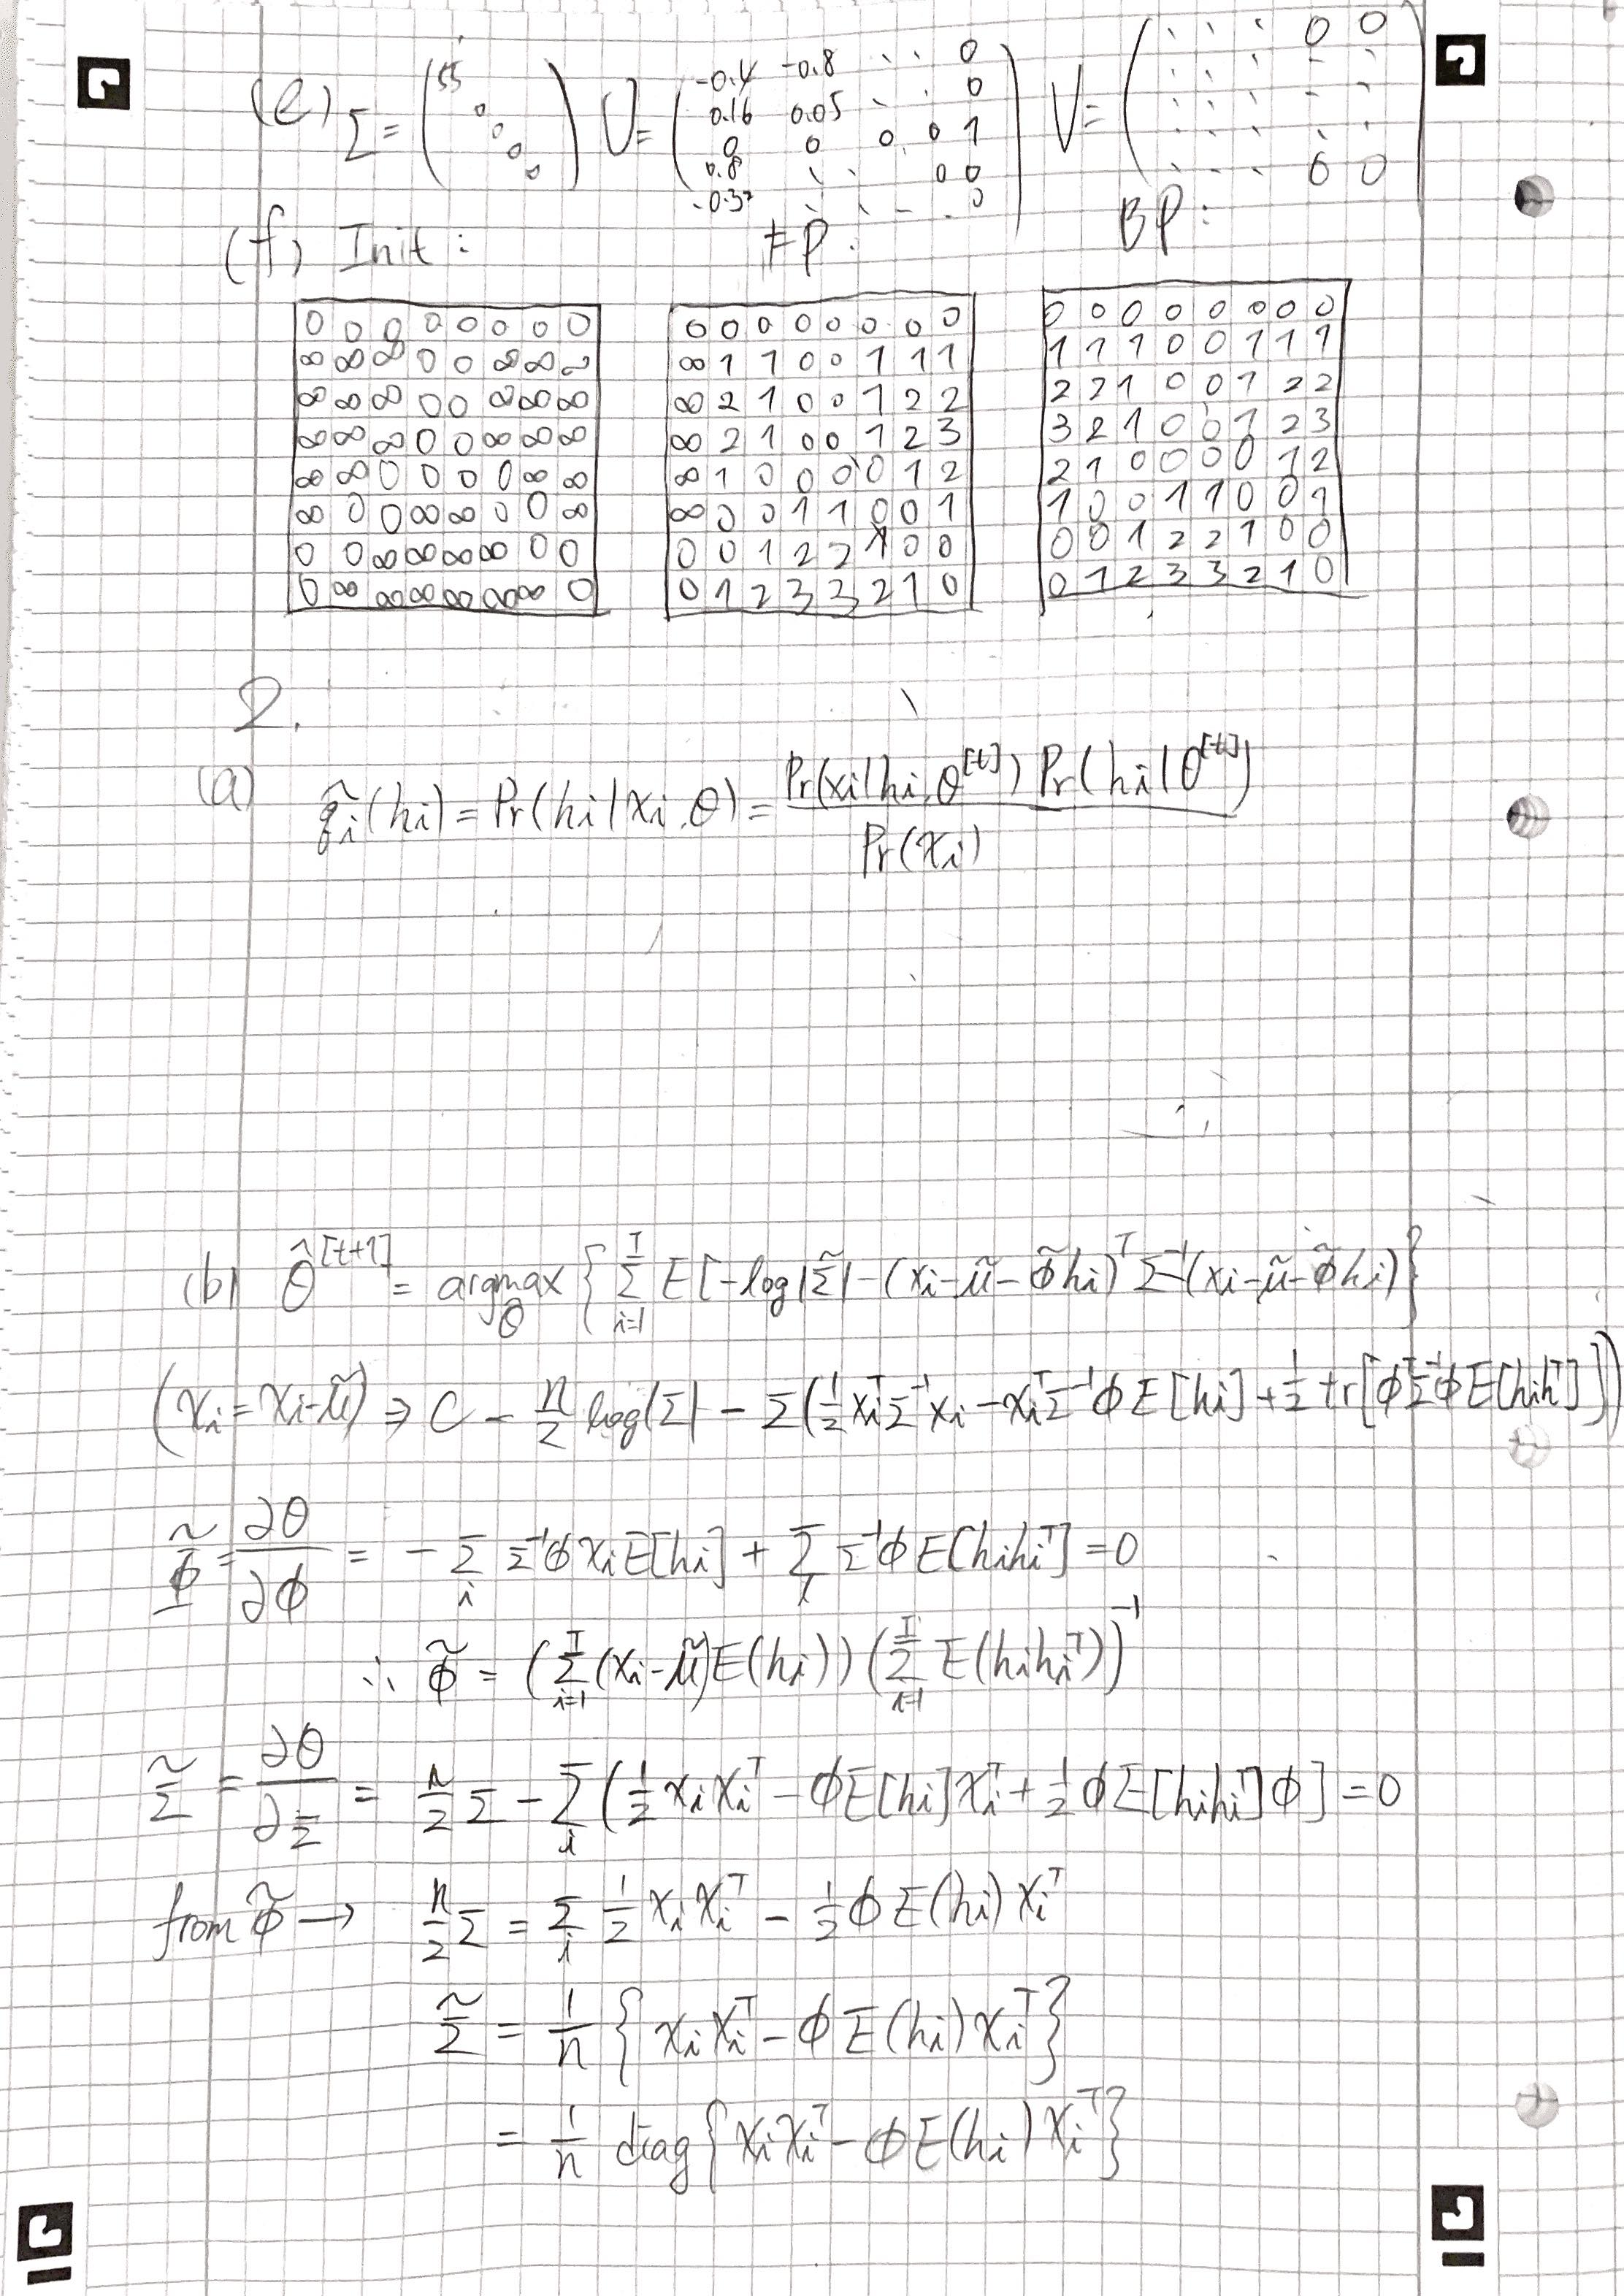 (e) Σ = (55 0 0 0 0) U = (-0.4 -0.8 . . 0
0.16 0.05 . . 0
0 0 0 0 1
0.8 . . 0 0
-0.32 . . . 0) V = (. . . 0 0
. . . . .
. . . . .
. . . . .
. . . 0 0)
(f) Init: FP: BP:
0 0 0 0 0 0 0 0
∞ ∞ ∞ 0 0 ∞ ∞ ∞
∞ ∞ ∞ 0 0 ∞ ∞ ∞
∞ ∞ ∞ 0 0 ∞ ∞ ∞
∞ ∞ 0 0 0 0 ∞ ∞
∞ 0 0 ∞ ∞ 0 0 ∞
0 0 ∞ ∞ ∞ ∞ 0 0
0 ∞ ∞ ∞ ∞ ∞ ∞ 0
0 0 0 0 0 0 0 0
∞ 1 1 0 0 1 1 1
∞ 2 1 0 0 1 2 2
∞ 2 1 0 0 1 2 3
∞ 1 0 0 0 0 1 2
∞ 0 0 1 1 0 0 1
0 0 1 2 2 1 0 0
0 1 2 3 3 2 1 0
0 0 0 0 0 0 0 0
1 1 1 0 0 1 1 1
2 2 1 0 0 1 2 2
3 2 1 0 0 1 2 3
2 1 0 0 0 0 1 2
1 0 0 1 1 0 0 1
0 0 1 2 2 1 0 0
0 1 2 3 3 2 1 0
2.
(a) q̃i(hi) = Pr(hi|xi,θ) = Pr(xi|hi,θ^[t]) Pr(hi|θ^[t]) / Pr(xi)
(b) θ̂^[t+1] = argmax_θ { Σ_{i=1}^I E[-log|Σ̃| - (xi-μ̃-φ̃hi)^T Σ^-1 (xi-μ̃-φ̃hi) }
(xi = xi-μ̃) ⇒ C - n/2 log|Σ| - Σ(1/2 xi^T Σ^-1 xi - xi^T Σ^-1 φ E[hi] + 1/2 tr[φ^T Σ^-1 φ E[hihi^T]])
φ̃ = ∂θ/∂φ = -Σ_i Σ^-1 φ xi E[hi] + Σ_i Σ^-1 φ E[hihi^T] = 0
∴ φ̃ = (Σ_{i=1}^I (xi-μ̃)E(hi)) (Σ_{i=1}^I E(hihi^T))^-1
Σ̃ = ∂θ/∂Σ = n/2 Σ - Σ_i (1/2 xixi^T - φE[hi]xi^T + 1/2 φE[hihi^T]φ] = 0
from φ̃ → n/2 Σ = Σ_i 1/2 xixi^T - 1/2 φE(hi)xi^T
Σ̃ = 1/n { xixi^T - φE(hi)xi^T }
= 1/n diag{ xixi^T - φE(hi)xi^T }